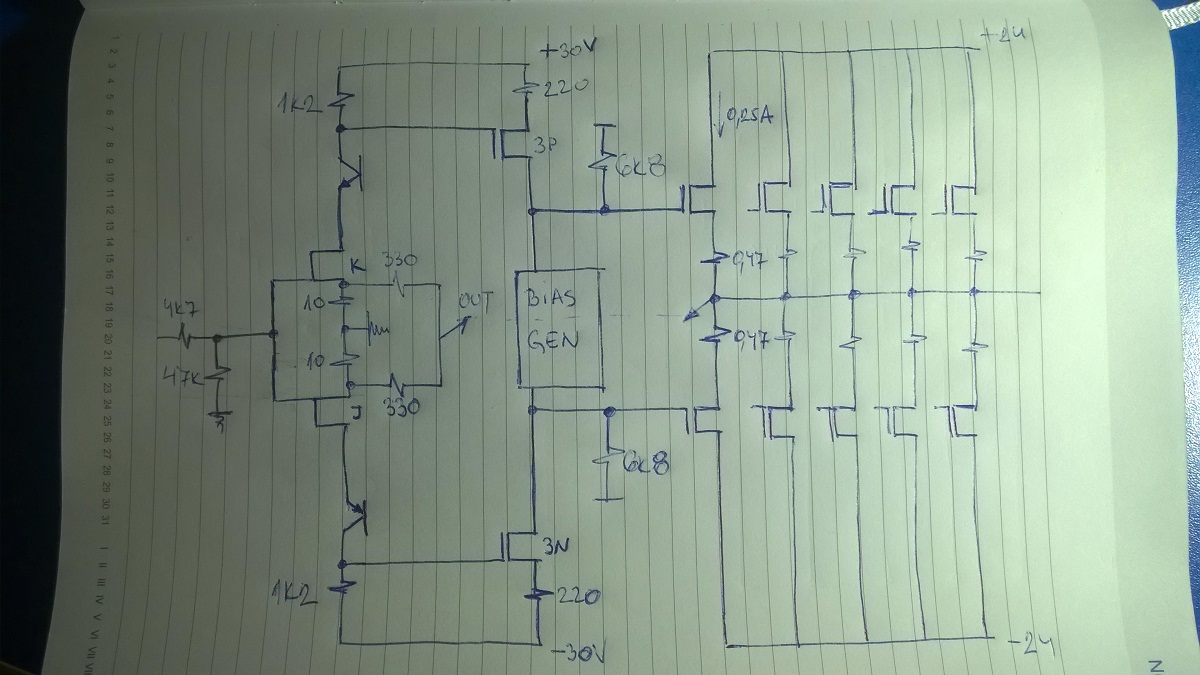 +30V
+24
1K2
220
0,25A
3P
6K8
K
330
10
OUT
BIAS
GEN
0,47
4K7
47K
10
0,47
330
J
6K8
3N
1K2
220
-30V
-24
1
2
3
4
5
6
7
8
9
10
11
12
13
14
15
16
17
18
19
20
21
22
23
24
25
26
27
28
29
30
31
I
II
III
IV
V
VI
VII
N